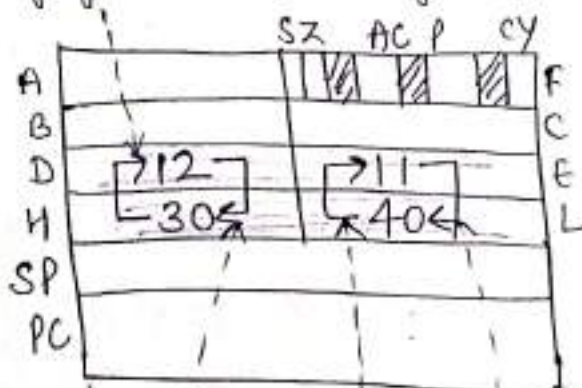 SZ AC P CY
A F
B C
D 12 11 E
H 30 40 L
SP
PC